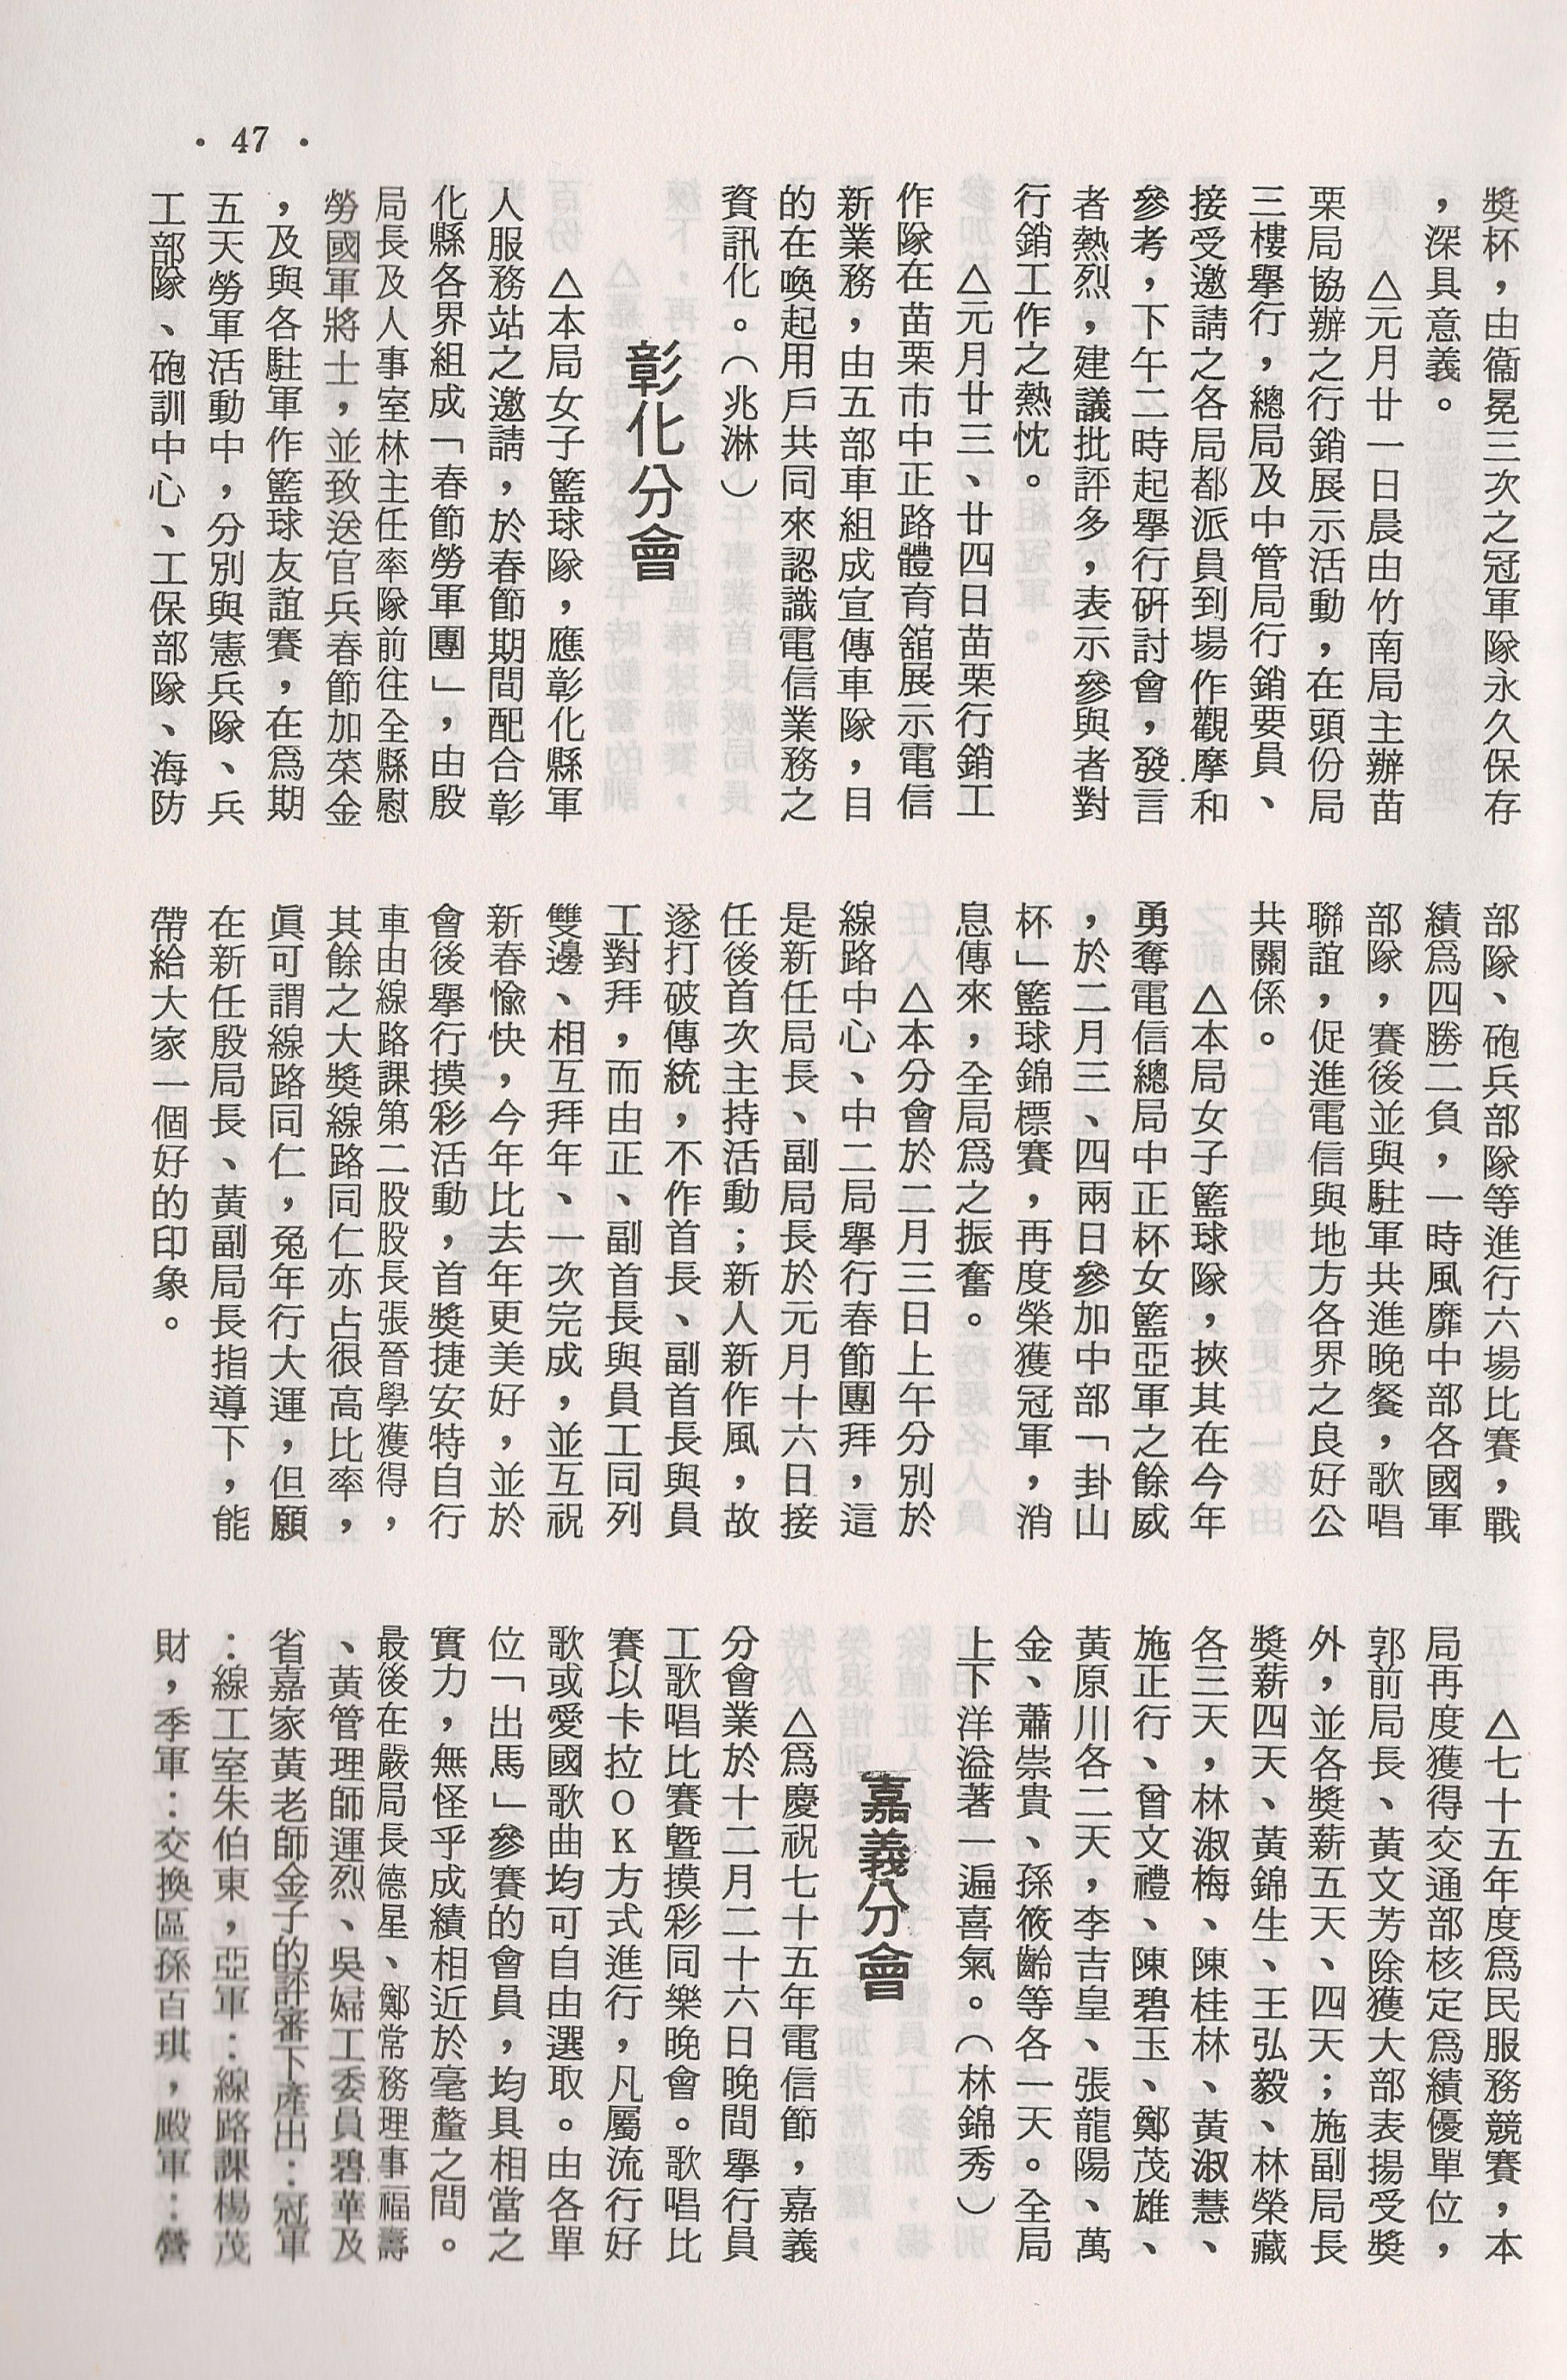 • 47 •
獎杯，由衞冕三次之冠軍隊永久保存
，深具意義。
△元月廿一日晨由竹南局主辦苗
栗局協辦之行銷展示活動，在頭份局
三樓舉行，總局及中管局行銷要員、
接受邀請之各局都派員到場作觀摩和
參考，下午二時起舉行硏討會，發言
者熱烈，建議批評多，表示參與者對
行銷工作之熱忱。
△元月廿三、廿四日苗栗行銷工
作隊在苗栗市中正路體育舘展示電信
新業務，由五部車組成宣傳車隊，目
的在喚起用戶共同來認識電信業務之
資訊化。（兆淋）
彰化分會
△本局女子籃球隊，應彰化縣軍
人服務站之邀請，於春節期間配合彰
化縣各界組成「春節勞軍團」，由殷
局長及人事室林主任率隊前往全縣慰
勞國軍將士，並致送官兵春節加菜金
，及與各駐軍作籃球友誼賽，在爲期
五天勞軍活動中，分別與憲兵隊、兵
工部隊、砲訓中心、工保部隊、海防
部隊、砲兵部隊等進行六場比賽，戰
績爲四勝二負，一時風靡中部各國軍
部隊，賽後並與駐軍共進晚餐，歌唱
聯誼，促進電信與地方各界之良好公
共關係。
△本局女子籃球隊，挾其在今年
勇奪電信總局中正杯女籃亞軍之餘威
，於二月三、四兩日參加中部「卦山
杯」籃球錦標賽，再度榮獲冠軍，消
息傳來，全局爲之振奮。
△本分會於二月三日上午分別於
線路中心、中二局舉行春節團拜，這
是新任局長、副局長於元月十六日接
任後首次主持活動；新人新作風，故
遂打破傳統，不作首長、副首長與員
工對拜，而由正、副首長與員工同列
雙邊、相互拜年、一次完成，並互祝
新春愉快，今年比去年更美好，並於
會後舉行摸彩活動，首獎捷安特自行
車由線路課第二股股長張晉學獲得，
其餘之大獎線路同仁亦占很高比率，
眞可謂線路同仁，兔年行大運，但願
在新任殷局長、黃副局長指導下，能
帶給大家一個好的印象。
△七十五年度爲民服務競賽，本
局再度獲得交通部核定爲績優單位，
郭前局長、黃文芳除獲大部表揚受獎
外，並各獎薪五天、四天；施副局長
獎薪四天、黃錦生、王弘毅、林榮藏
各三天，林淑梅、陳桂林、黃淑慧、
施正行、曾文禮、陳碧玉、鄭茂雄、
黃原川各二天，李吉皇、張龍陽、萬
金、蕭崇貴、孫筱齡等各一天。全局
上下洋溢著一遍喜氣。（林錦秀）
嘉義分會
△爲慶祝七十五年電信節，嘉義
分會業於十二月二十六日晚間舉行員
工歌唱比賽暨摸彩同樂晚會。歌唱比
賽以卡拉OK方式進行，凡屬流行好
歌或愛國歌曲均可自由選取。由各單
位「出馬」參賽的會員，均具相當之
實力，無怪乎成績相近於毫釐之間。
最後在嚴局長德星、鄭常務理事福壽
、黃管理師運烈、吳婦工委員碧華及
省嘉家黃老師金子的評審下產出：冠軍
：線工室朱伯東，亞軍：線路課楊茂
財，季軍：交換區孫百琪，殿軍：營